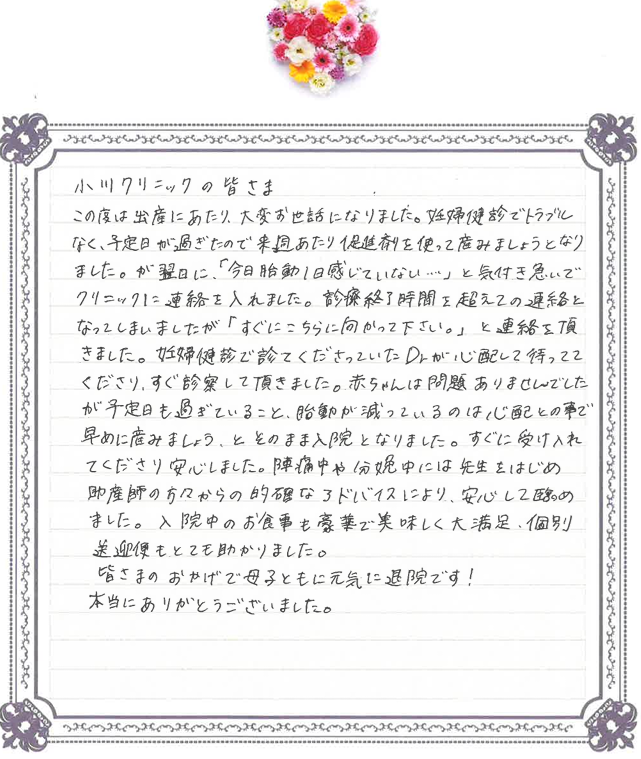 小川クリニックの皆さま
この度は出産にあたり、大変お世話になりました。妊婦健診でトラブル
なく、予定日が過ぎたので来週あたり促進剤を使って産みましょうとなり
ました。が翌日に、「今日胎動1日感じていない…」と気付き急いで
クリニックに連絡を入れました。診療終了時間を超えての連絡と
なってしまいましたが「すぐにこちらに向かって下さい。」と連絡を頂
きました。妊婦健診で診てくださっていたDrが心配して待ってて
くださり、すぐ診察して頂きました。赤ちゃんは問題ありませんでした
が予定日も過ぎていること、胎動が減っているのは心配との事で
早めに産みましょう、とそのまま入院となりました。すぐに受け入れ
てくださり安心しました。陣痛中や分娩中には先生をはじめ
助産師の方々からの的確なアドバイスにより、安心して臨め
ました。入院中のお食事も豪華で美味しく大満足、個別
送迎便もとても助かりました。
皆さまのおかげで母子ともに元気に退院です!
本当にありがとうございました。